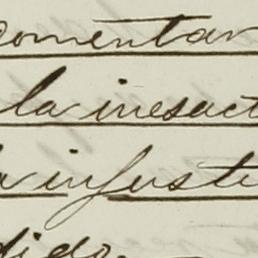 comentar
la inesact
la injusti
dido